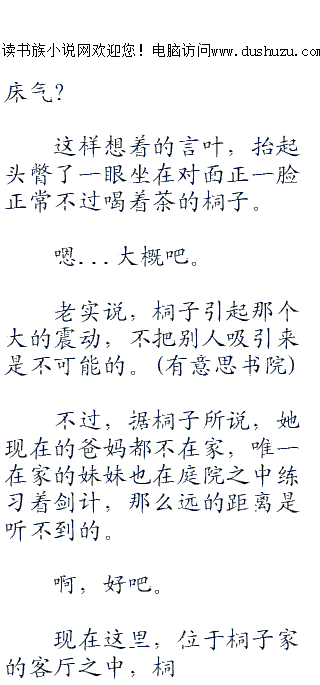 读书族小说网欢迎您！电脑访问www.dushuzu.com
床气？
这样想着的言叶，抬起
头瞥了一眼坐在对面正一脸
正常不过喝着茶的桐子。
嗯...大概吧。
老实说，桐子引起那个
大的震动，不把别人吸引来
是不可能的。(有意思书院)
不过，据桐子所说，她
现在的爸妈都不在家，唯一
在家的妹妹也在庭院之中练
习着剑计，那么远的距离是
听不到的。
啊，好吧。
现在这里，位于桐子家
的客厅之中，桐